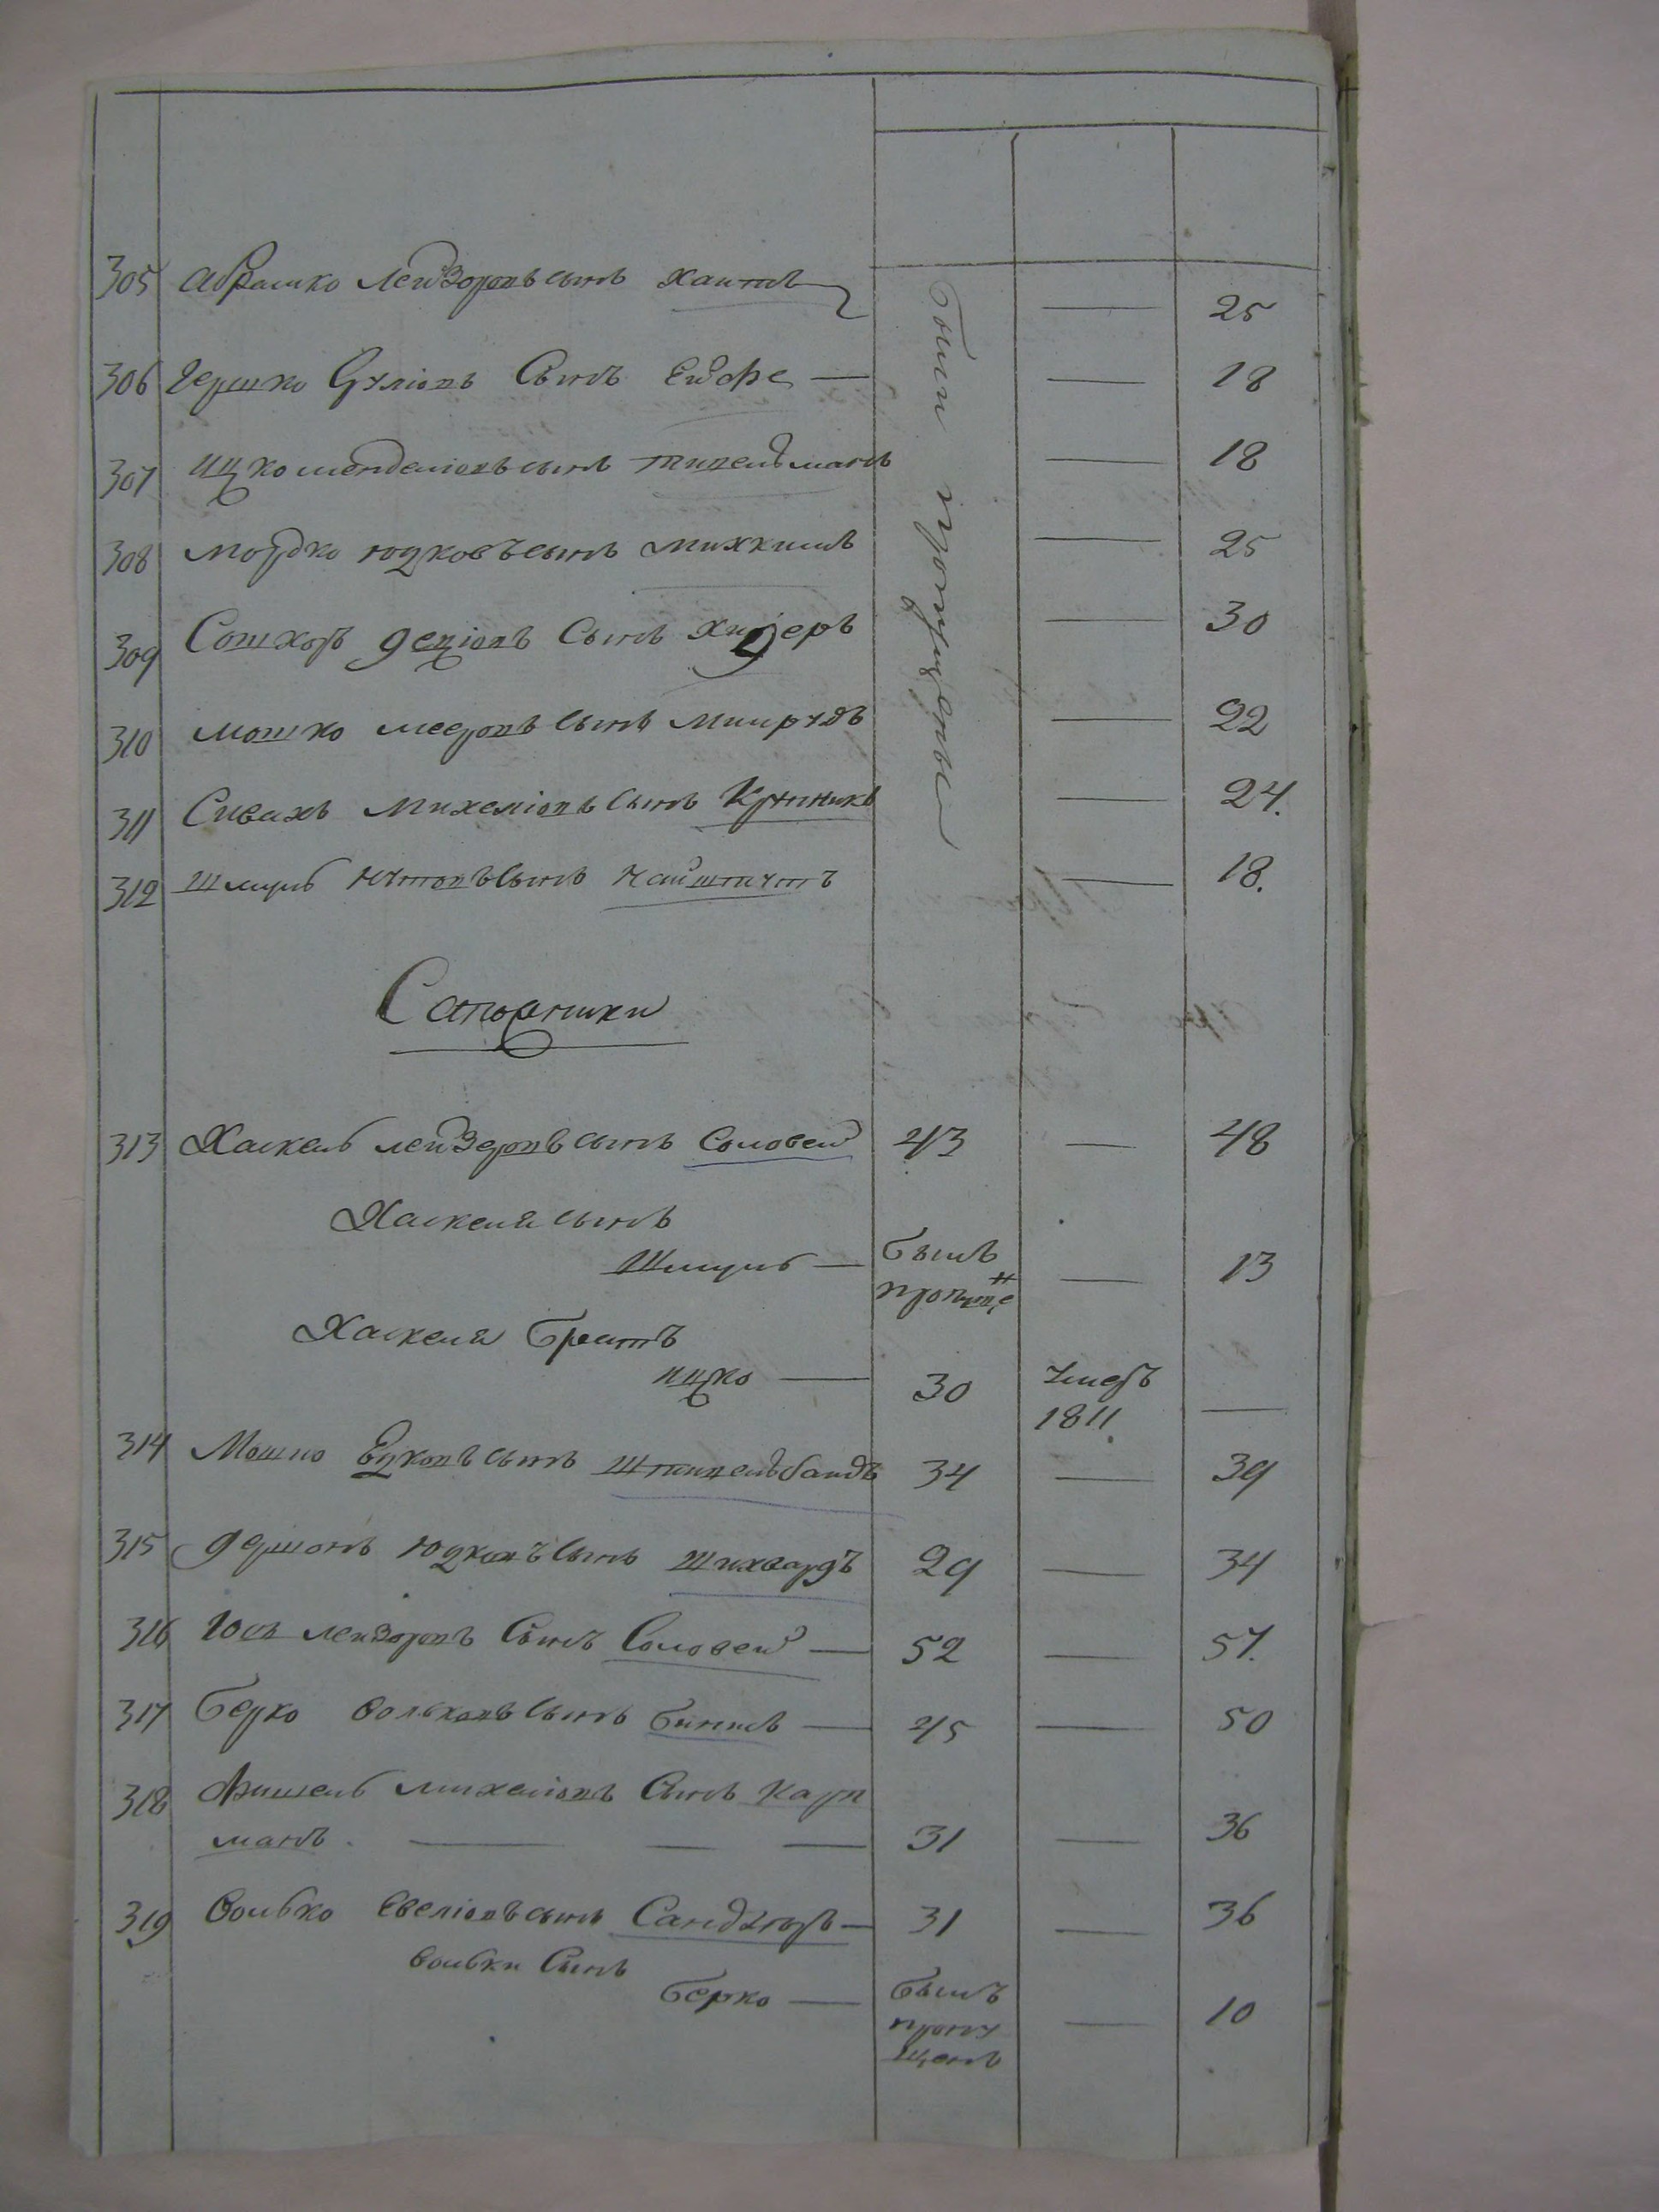 305 Абрамко Лейзоровъ сынъ Хаитъ — 25
были пропущены
306 Гершко Сулiовъ Сынъ Ейдфе — — 18
307 Ицко менделiовъ сынъ типельманъ — 18
308 Мордко юдковъ сынъ Михкилъ — 25
309 децiовъ Сынъ — 30
310 Мошко мееровъ сынъ — 22
311 Сивахъ Михелiовъ сынъ Крупникъ — 24.
312 Шмуль нутовъ сынъ — 18.
Сапожники
313 Хаскель лейзеровъ сынъ Соловей 43 — 48
Хаскеля сынъ
Шмуль — былъ пропуще н — 13
Хаскеля братъ
ицко — 30 умеръ 1811. —
314 Мошко Ецковъ сынъ Штипельбандъ 34 — 39
315 Гершонъ юдковъ сынъ Шихвардъ 29 — 34
316 Юсъ лейзоровъ Сынъ Соловей — 52 — 57.
317 Берко вольковъ сынъ бикилъ — 45 — 50
318 Фишель михелiовъ Сынъ Карп
манъ. — — — 31 — 36
319 Волько Евелiовъ сынъ — 31 — 36
вольки Сынъ
берко — былъ пропу щенъ — 10